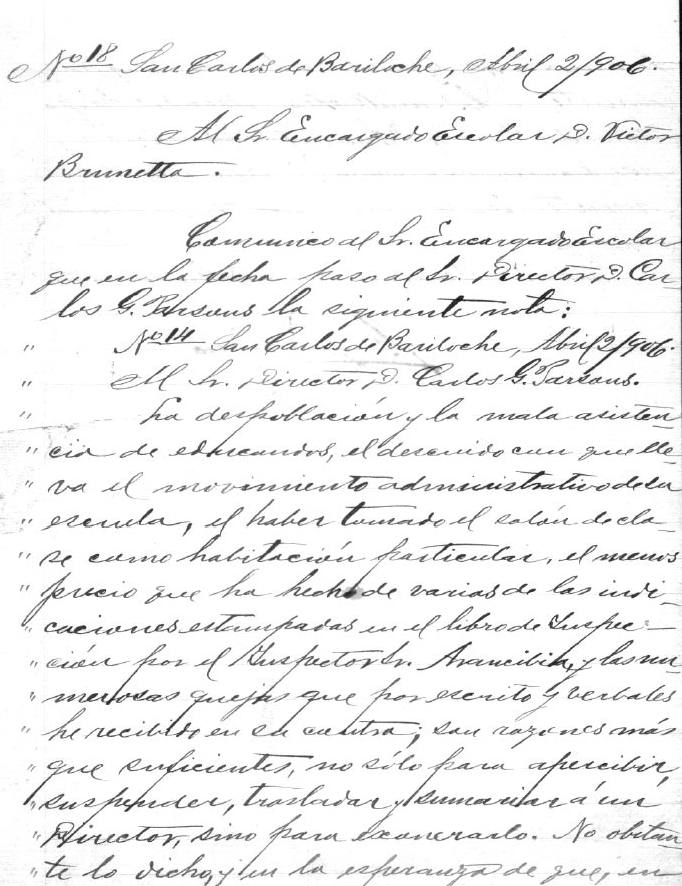 Nº 18 San Carlos de Bariloche, Abril 2/906.
Al Sr. Encargado Escolar D. Victor
Brunetta.
Comunico al Sr. Encargado Escolar
que en la fecha paso al Sr. Director D. Car-
los G. Parsons la siguiente nota:
" Nº 14 San Carlos de Bariloche, Abril 2/906.
" Al Sr. Director D. Carlos G. Parsons.
" La despoblación y la mala asisten-
" cia de educandos, el descuido con que lle-
" va el movimiento administrativo de su
" escuela, el haber tomado el salón de cla-
" se como habitación particular, el menos
" precio que ha hecho de varias de las indi-
" caciones estampadas en el libro de Inspec-
" ción por el Inspector Sr. Arancibia, y las nu-
" merosas quejas que por escrito y verbales
" he recibido en su contra; son razones más
" que suficientes, no sólo para apercibir,
" suspender, trasladar y sumariar á un
" Director, sino para exonerarlo. No obstan-
" te lo dicho, y en la esperanza de que, en